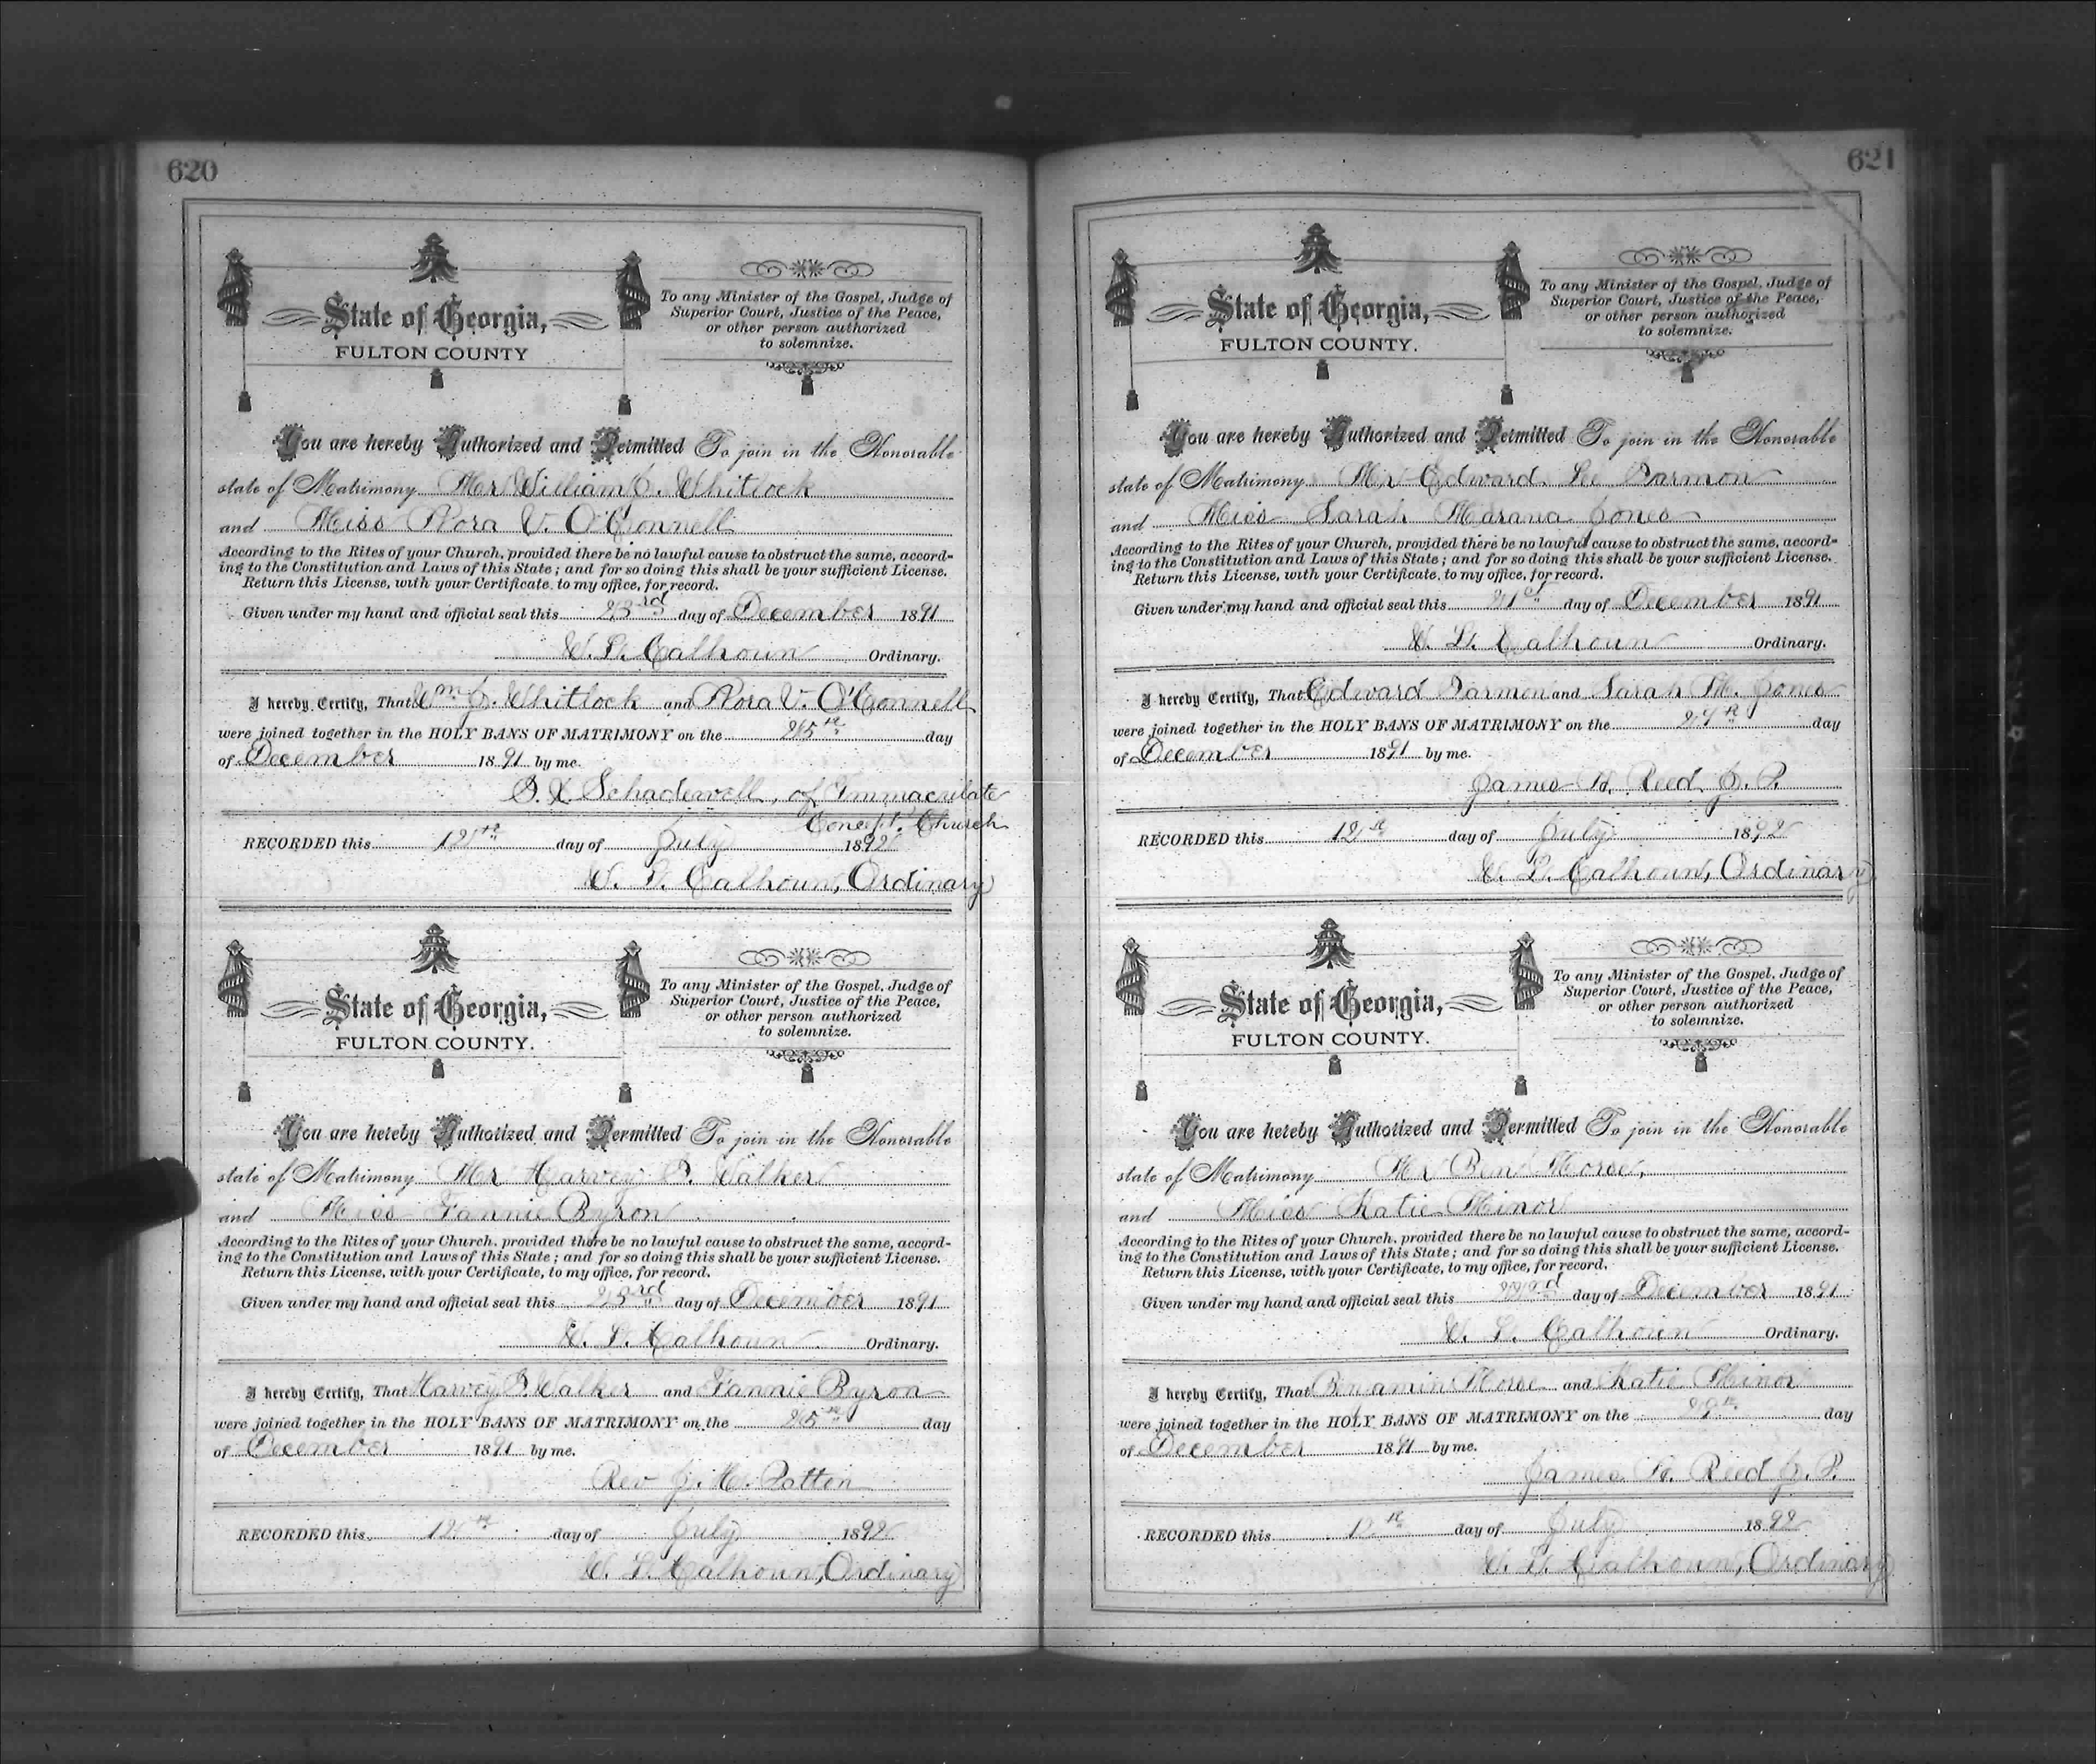 620
State of Georgia,
FULTON COUNTY
To any Minister of the Gospel, Judge of
Superior Court, Justice of the Peace,
or other person authorized
to solemnize.
You are hereby Authorized and Permitted To join in the Honorable
state of Matrimony Mr William J. Whitlock
and Miss Nora V. O'Connell
According to the Rites of your Church, provided there be no lawful cause to obstruct the same, accord-
ing to the Constitution and Laws of this State; and for so doing this shall be your sufficient License.
Return this License, with your Certificate, to my office, for record.
Given under my hand and official seal this 23rd day of December 1891
W. L. Calhoun Ordinary.
I hereby Certify, That Wm J. Whitlock and Nora V. O'Connell
were joined together in the HOLY BANS OF MATRIMONY on the 25th day
of December 1891 by me.
Schadewell, of Immaculate
Concept. Church
RECORDED this 12th day of July 1892
W. L. Calhoun, Ordinary
State of Georgia,
FULTON COUNTY.
To any Minister of the Gospel, Judge of
Superior Court, Justice of the Peace,
or other person authorized
to solemnize.
You are hereby Authorized and Permitted To join in the Honorable
state of Matrimony Mr Harvey P. Walker
and Miss Fannie Byron
According to the Rites of your Church, provided there be no lawful cause to obstruct the same, accord-
ing to the Constitution and Laws of this State; and for so doing this shall be your sufficient License.
Return this License, with your Certificate, to my office, for record.
Given under my hand and official seal this 23rd day of December 1891
W. L. Calhoun Ordinary.
I hereby Certify, That Harvey P. Walker and Fannie Byron
were joined together in the HOLY BANS OF MATRIMONY on the 25th day
of December 1891 by me.
Rev J. H. Patten
RECORDED this 12th day of July 1892
W. L. Calhoun, Ordinary
621
State of Georgia,
FULTON COUNTY.
To any Minister of the Gospel, Judge of
Superior Court, Justice of the Peace,
or other person authorized
to solemnize.
You are hereby Authorized and Permitted To join in the Honorable
state of Matrimony Mr Edward Lee
and Miss Sarah Jones
According to the Rites of your Church, provided there be no lawful cause to obstruct the same, accord-
ing to the Constitution and Laws of this State; and for so doing this shall be your sufficient License.
Return this License, with your Certificate, to my office, for record.
Given under my hand and official seal this 21st day of December 1891
W. L. Calhoun Ordinary.
I hereby Certify, That Edward and Sarah M. Jones
were joined together in the HOLY BANS OF MATRIMONY on the day
of December 1891 by me.
James H. Reed J. P.
RECORDED this 12th day of July 1892
W. L. Calhoun, Ordinary
State of Georgia,
FULTON COUNTY.
To any Minister of the Gospel, Judge of
Superior Court, Justice of the Peace,
or other person authorized
to solemnize.
You are hereby Authorized and Permitted To join in the Honorable
state of Matrimony Mr Ben Morse,
and Miss Katie Minor
According to the Rites of your Church, provided there be no lawful cause to obstruct the same, accord-
ing to the Constitution and Laws of this State; and for so doing this shall be your sufficient License.
Return this License, with your Certificate, to my office, for record.
Given under my hand and official seal this 22nd day of December 1891
W. L. Calhoun Ordinary.
I hereby Certify, That Benjamin Morse and Katie Minor
were joined together in the HOLY BANS OF MATRIMONY on the 29th day
of December 1891 by me.
James H. Reed J. P.
RECORDED this 12th day of July 1892
W. L. Calhoun, Ordinary